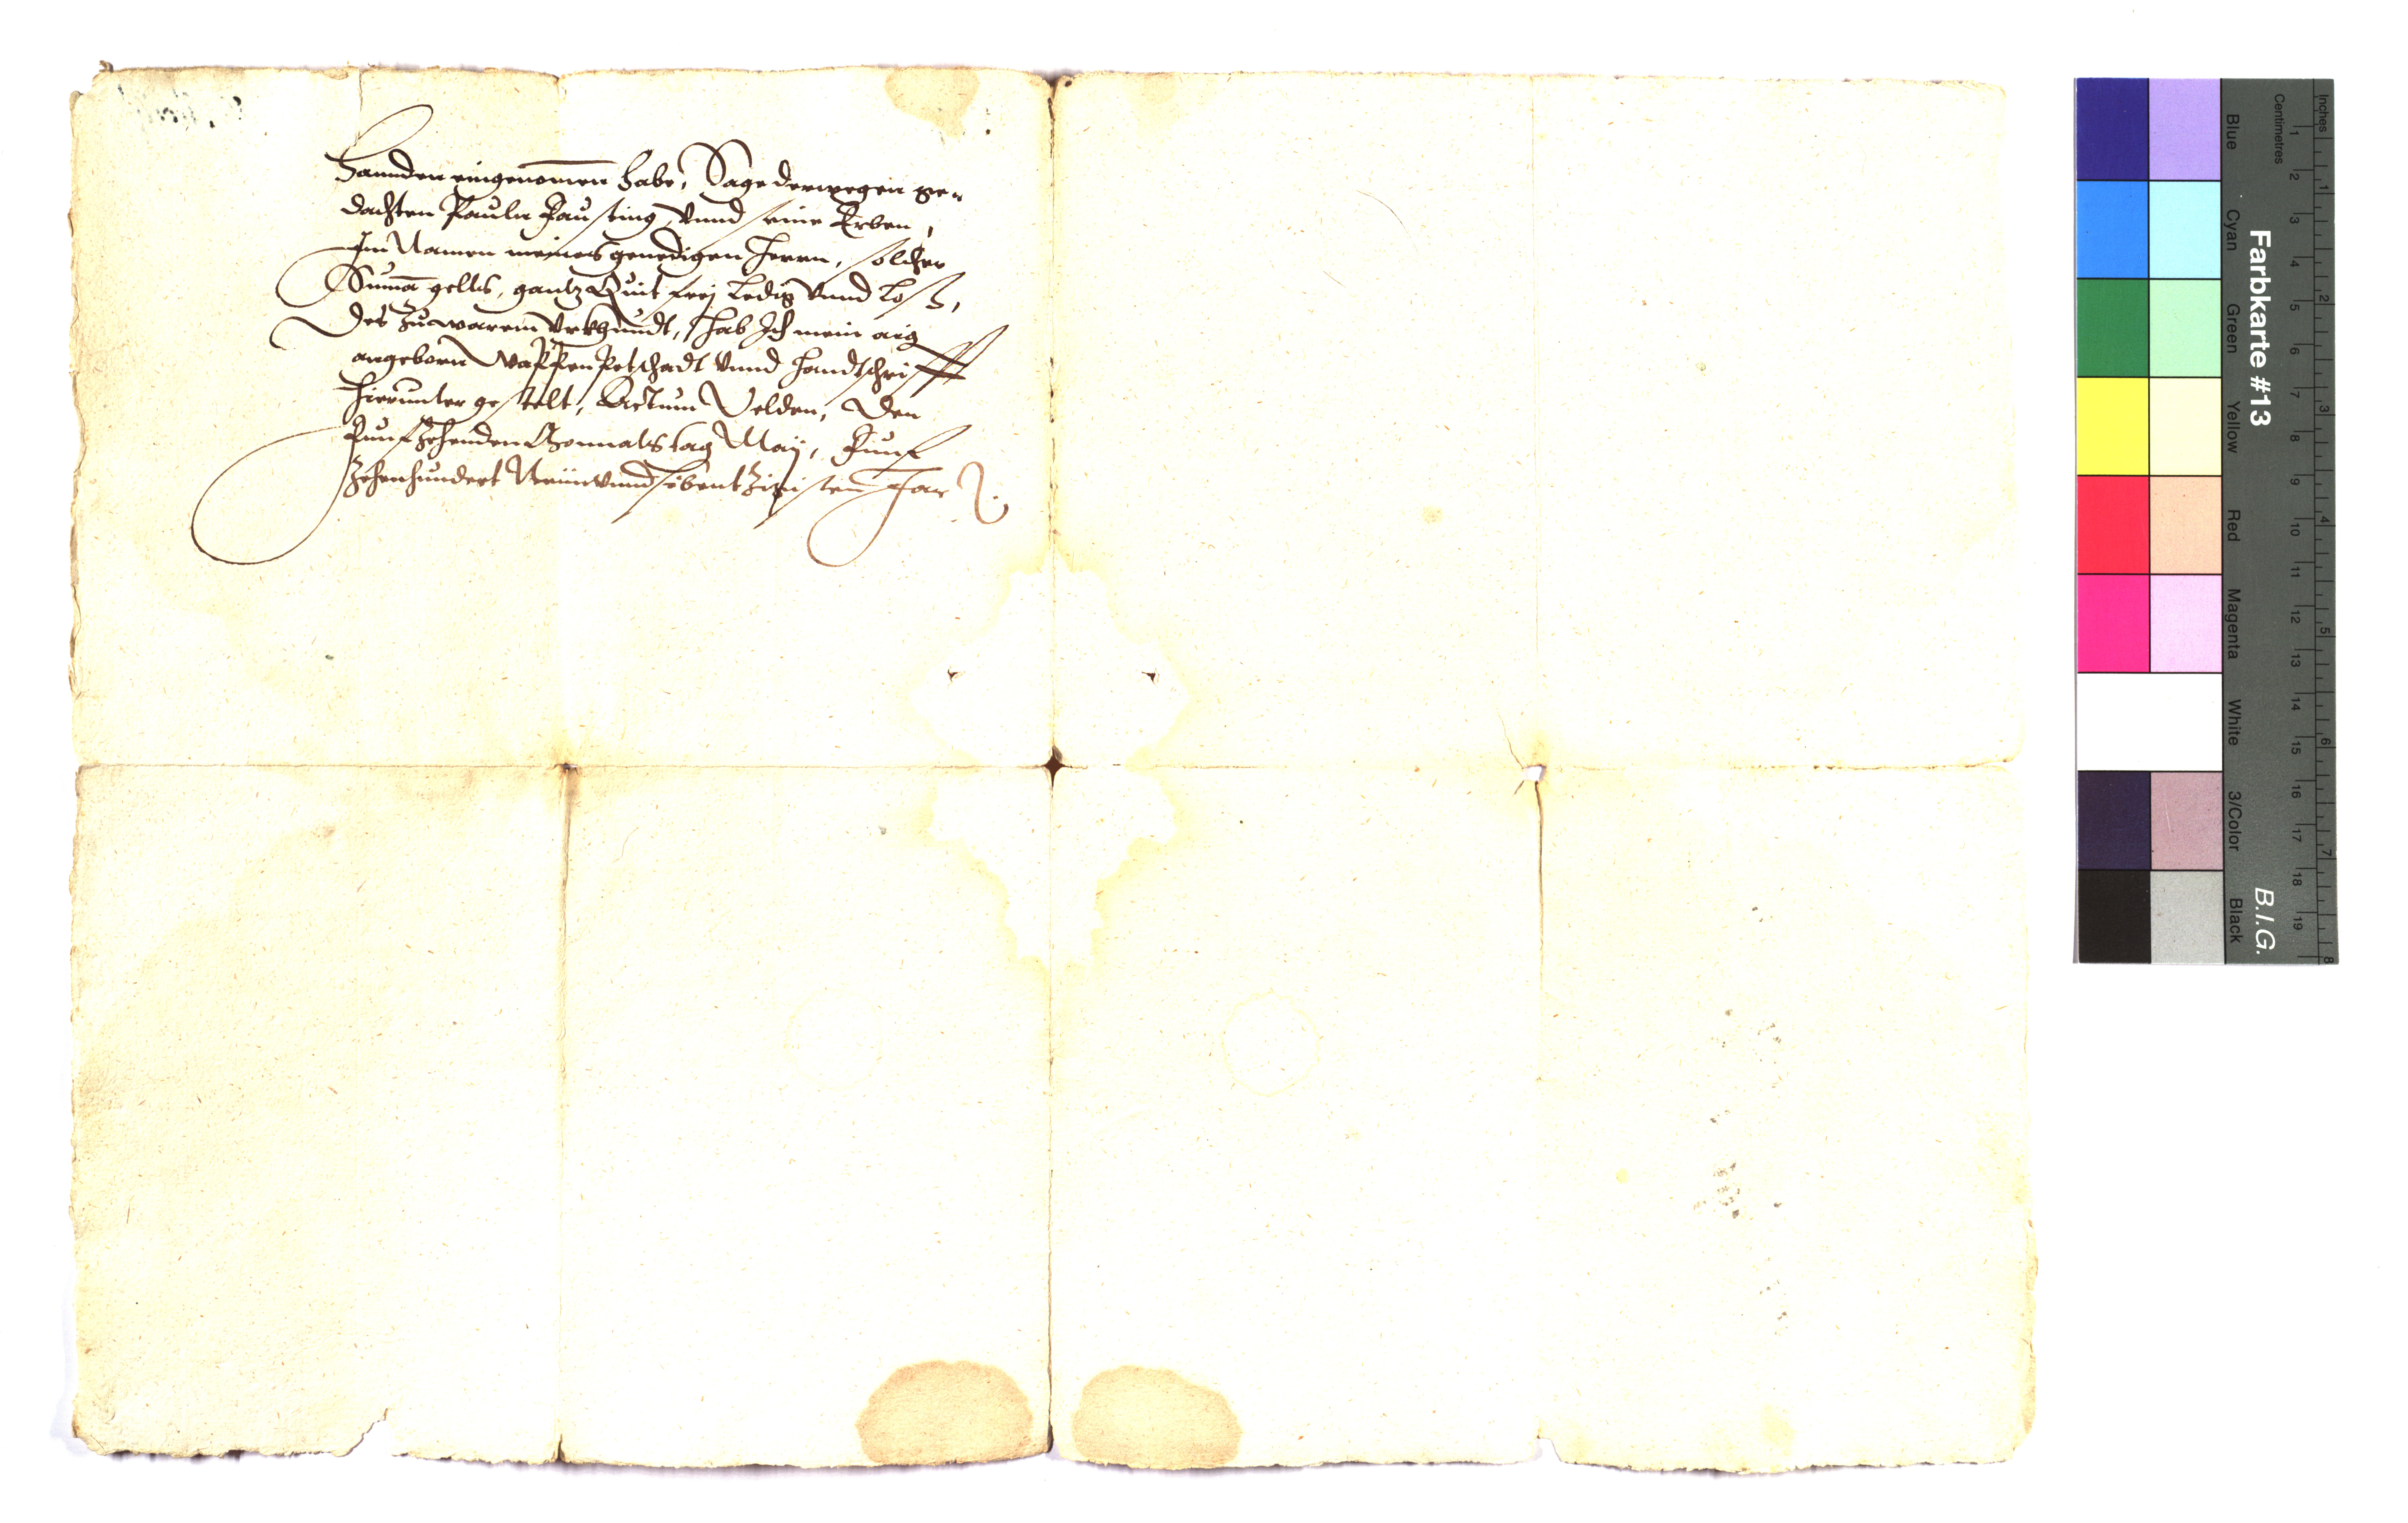 Hannden eingenomen habe, Sage derwegen ge-
dachten Pauln Fausting, vnnd seine Erben,
Im Namen meines genedigen Herrn, solcher
Suma gelts, gantz Quit frej Ledig vnnd loß,
Des zu warem Vrkhundt, hab Ich mein aig
angeborn Wappen Petschadt vnnd Handtschrifft
hierunter gestelt, Actum Velden, Den
Funfzehenden Monnats tag Maÿ, Funf
zehenhundert Neün vnnd sibentzigisten Jar
Farbkarte #13
B.I.G.
Blue
Cyan
Green
Yellow
Red
Magenta
White
3/Color
Black
Centimetres
1 2 3 4 5 6 7 8 9 10 11 12 13 14 15 16 17 18 19
Inches
1 2 3 4 5 6 7 8